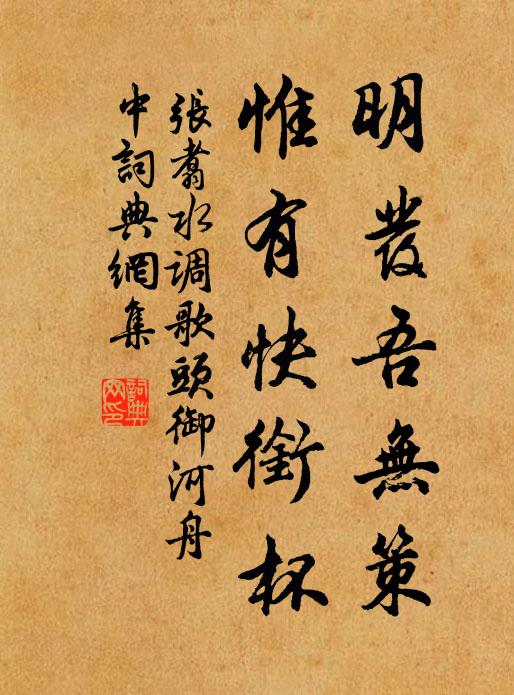 明發吾無策
惟有快銜杯
張翥水调歌頭御河舟
中詞典網集
詞典
网印